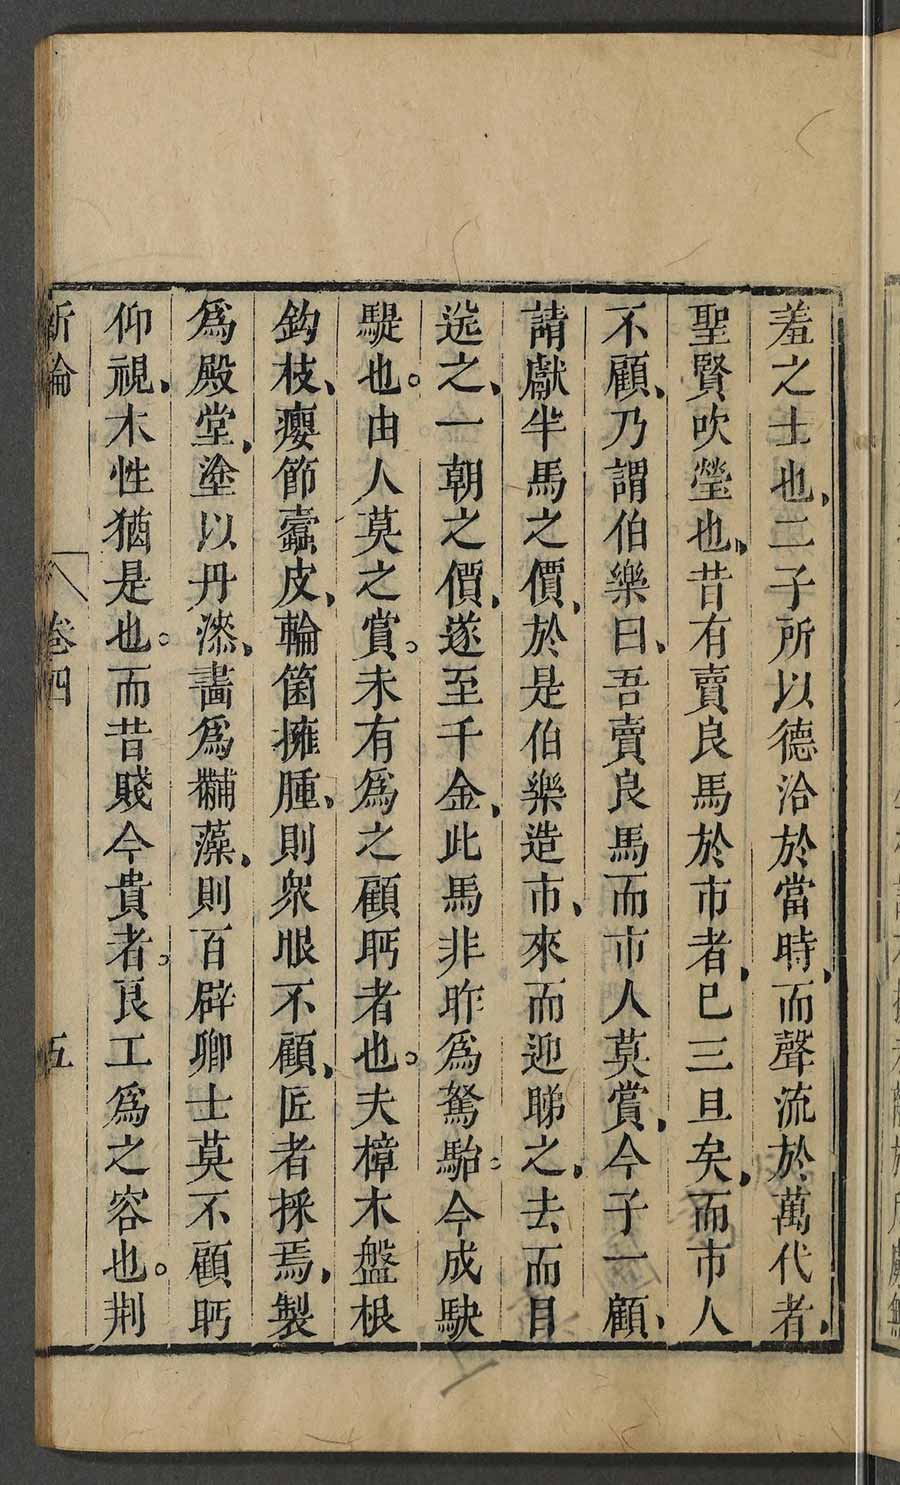 羞之士也、二子所以德洽於當時、而聲流於萬代者、
聖賢吹瑩也、昔有賣良馬於市者、已三旦矣、而市人
不顧、乃謂伯樂曰、吾賣良馬而市人莫賞、今子一顧、
請獻半馬之價、於是伯樂造市、來而迎睇之、去而目
送之、一朝之價、遂至千金、此馬非昨爲駑駘、今成駃
騠也。由人莫之賞。未有爲之顧眄者也。夫樟木盤根
鈎枝、癭節蠹皮、輪箘擁腫、則衆眼不顧、匠者採焉、製
爲殿堂、塗以丹漆、畵爲黼藻、則百辟卿士莫不顧眄
仰視、木性猶是也。而昔賤今貴者。良工爲之容也。荆
新論
卷四
五